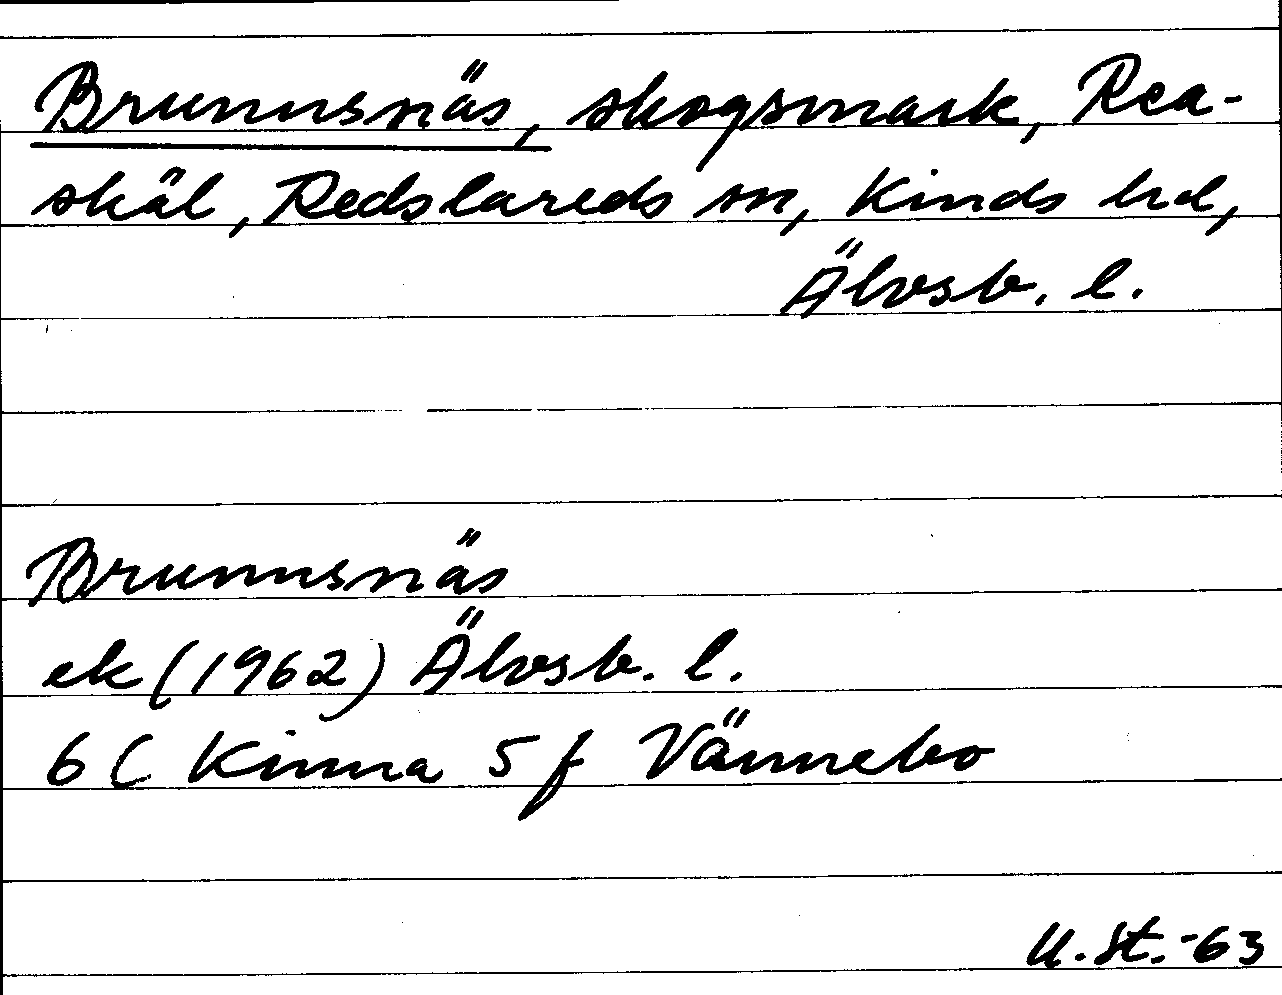 Brunnsnäs, skogsmark, Rea-
skäl, Redslareds sn, Kinds hd,
Älvsb. l.
Brunnsnäs
ek (1962) Älvsb. l.
6 C Kinna 5 f Vännebo
U.St.-63